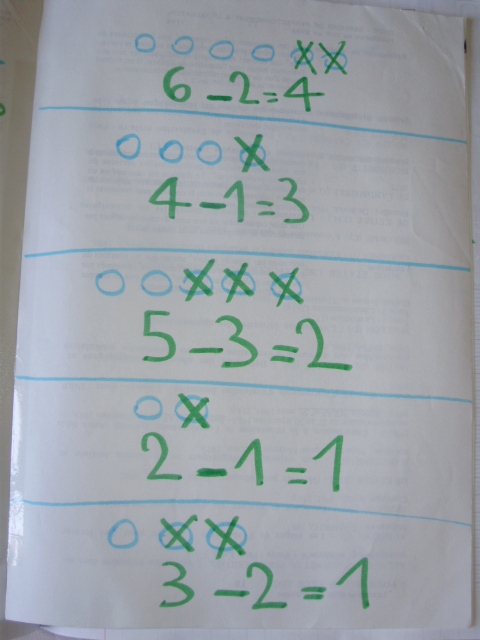 6 - 2 = 4
4 - 1 = 3
5 - 3 = 2
2 - 1 = 1
3 - 2 = 1